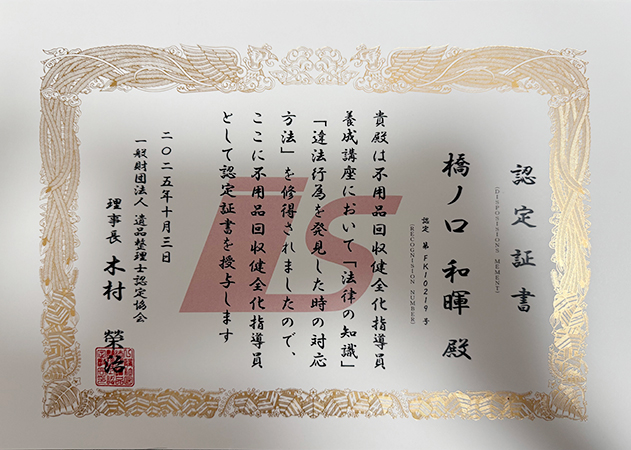 認定証書
(DISPOSISIONS MEMENT)
橋ノ口 和暉 殿
認定 第FK10219号
(RECOGNISION NUMBER)
貴殿は不用品回収健全化指導員
養成講座において「法律の知識」
「違法行為を発見した時の対応
方法」を修得されましたので、
ここに不用品回収健全化指導員
として認定証書を授与します
二〇二五年十月三日
一般財団法人 遺品整理士認定協会
理事長 木村 榮治
IS